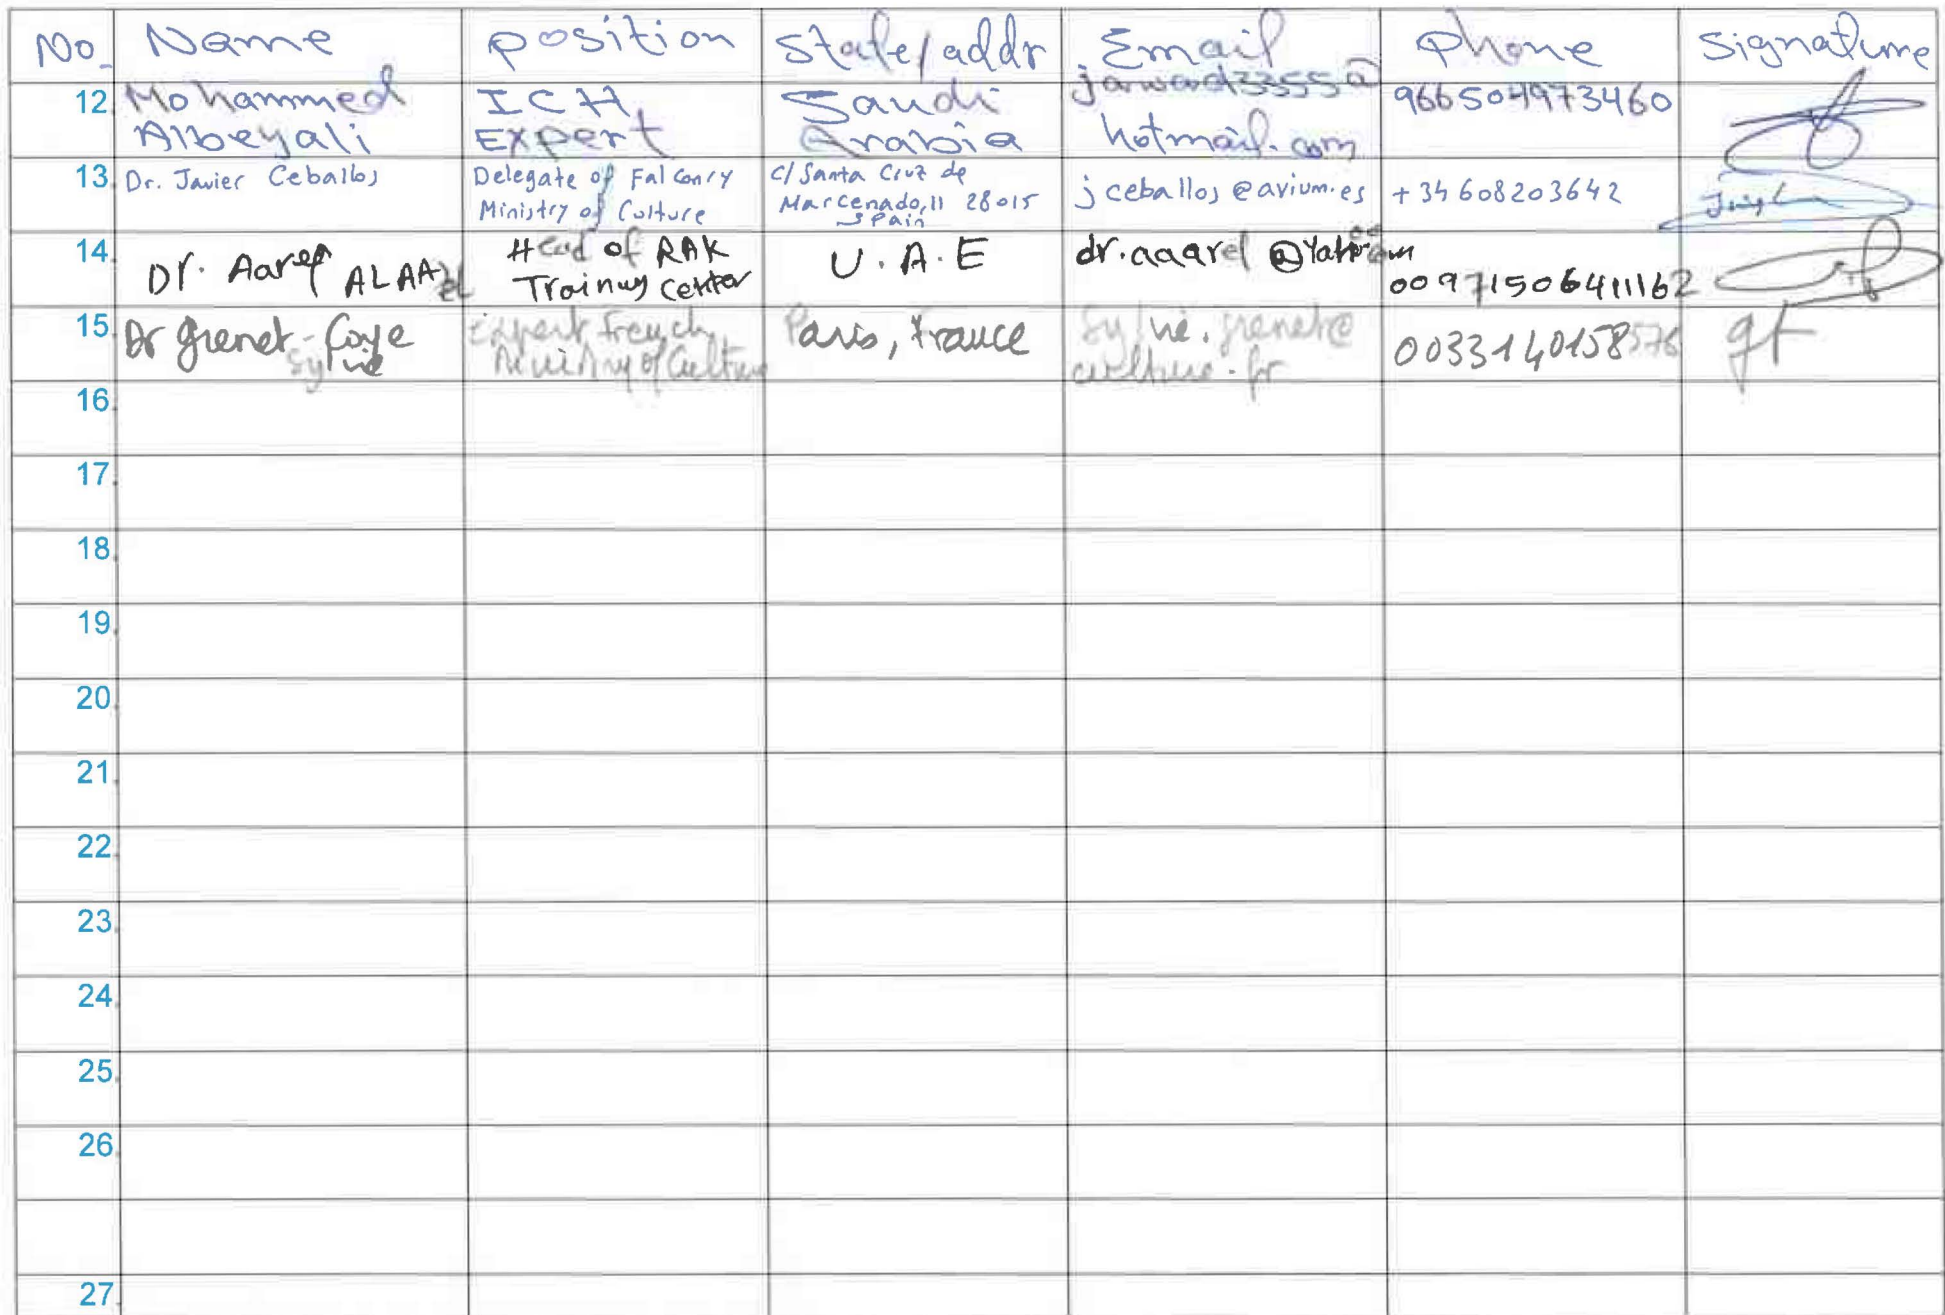 No. Name position State/addr Email Phone Signature
12 Mohammed Albeyali ICH Expert Saudi Arabia jarward3355@hotmail.com 966504973460
13 Dr. Javier Ceballos Delegate of Falconry Ministry of Culture C/ Santa Cruz de Marcenado, 11 28015 Spain jceballos@avium.es +34 608203642
14 Dr. Aaref Head of RAK Training center U.A.E 00971506411162
15 Dr Grenet-Foye Sylvie Expert French Ministry of Culture Paris, France sylvie.grenet@culture.fr 0033140158576
16
17
18
19
20
21
22
23
24
25
26
27